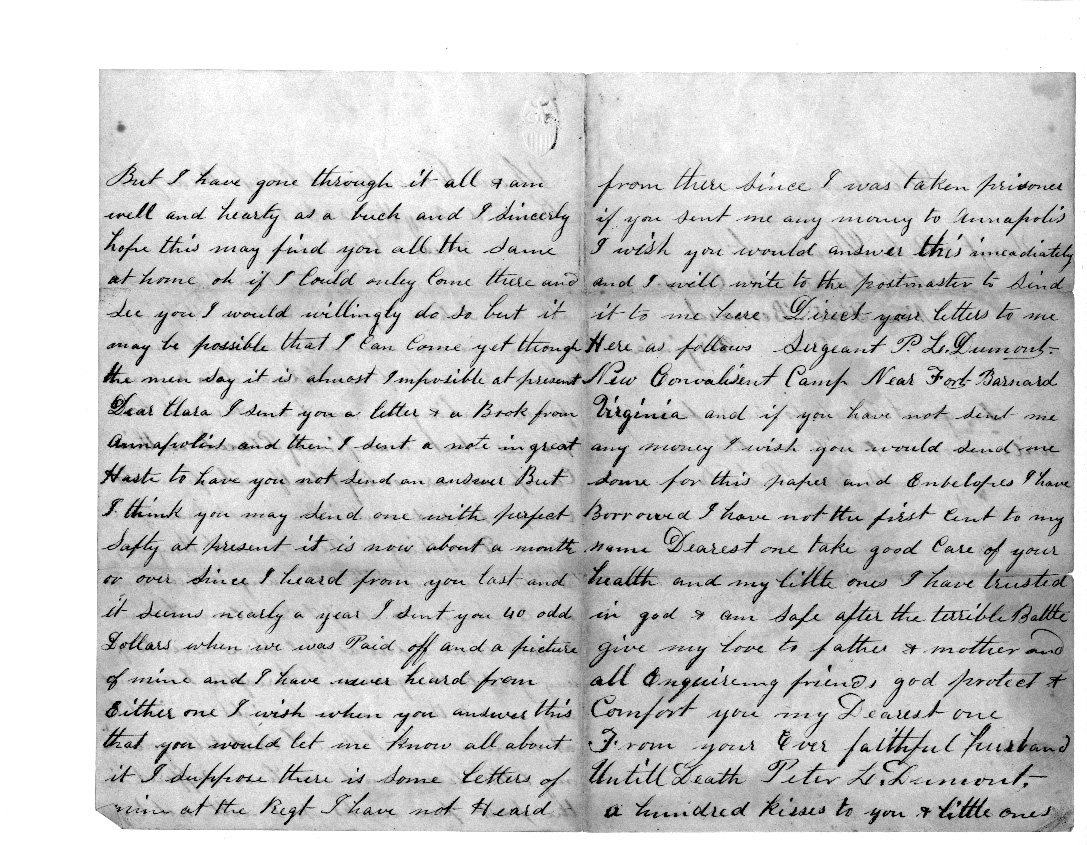 But I have gone through it all & am
well and hearty as a buck and I sincerly
hope this may find you all the same
at home oh if I Could onley Come there and
see you I would willingly do so but it
may be possible that I Can Come yet though
the men say it is almost Imposible at present
Dear Clara I sent you a letter & a Book from
Annapolis and then I sent a note in great
Haste to have you not send an answer But
I think you may send one with perfect
Safty at present it is now about a month
or over since I heard from you last and
it seems nearly a year I sent you 40 odd
Dollars when we was Paid off and a picture
of mine and I have never heard from
Either one I wish when you answer this
that you would let me know all about
it I suppose there is some letters of
mine at the Regt I have not Heard
from there since I was taken prisoner
if you sent me any money to Annapolis
I wish you would answer this imeadiately
and I will write to the postmaster to send
it to me here Direct your letters to me
Here as follows Sergeant P. L. Dumont-
New Convalisent Camp Near Fort Barnard
Virginia and if you have not sent me
any money I wish you would send me
some for this paper and Envelopes I have
Borrowed I have not the first Cent to my
name Dearest one take good Care of your
health and my little ones I have trusted
in god & am safe after the terrible Battle
give my love to father & mother and
all Enquireing friends god protect &
Comfort you my Dearest one
From your Ever faithful husband
Untill Death Peter L. Dumont-
a hundred kisses to you & little ones